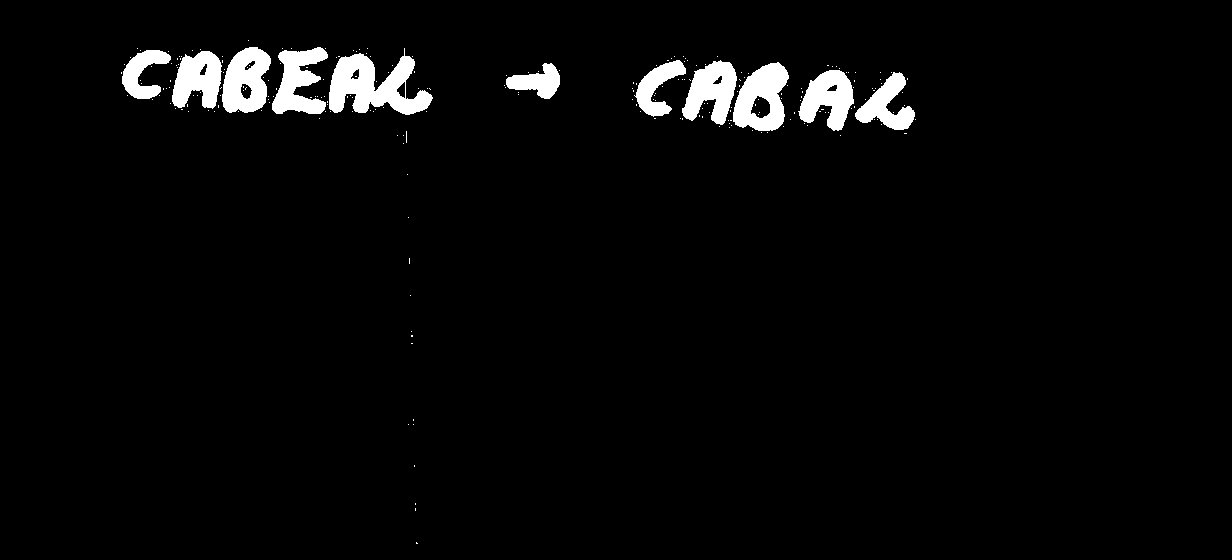 CABEAL → CABAL